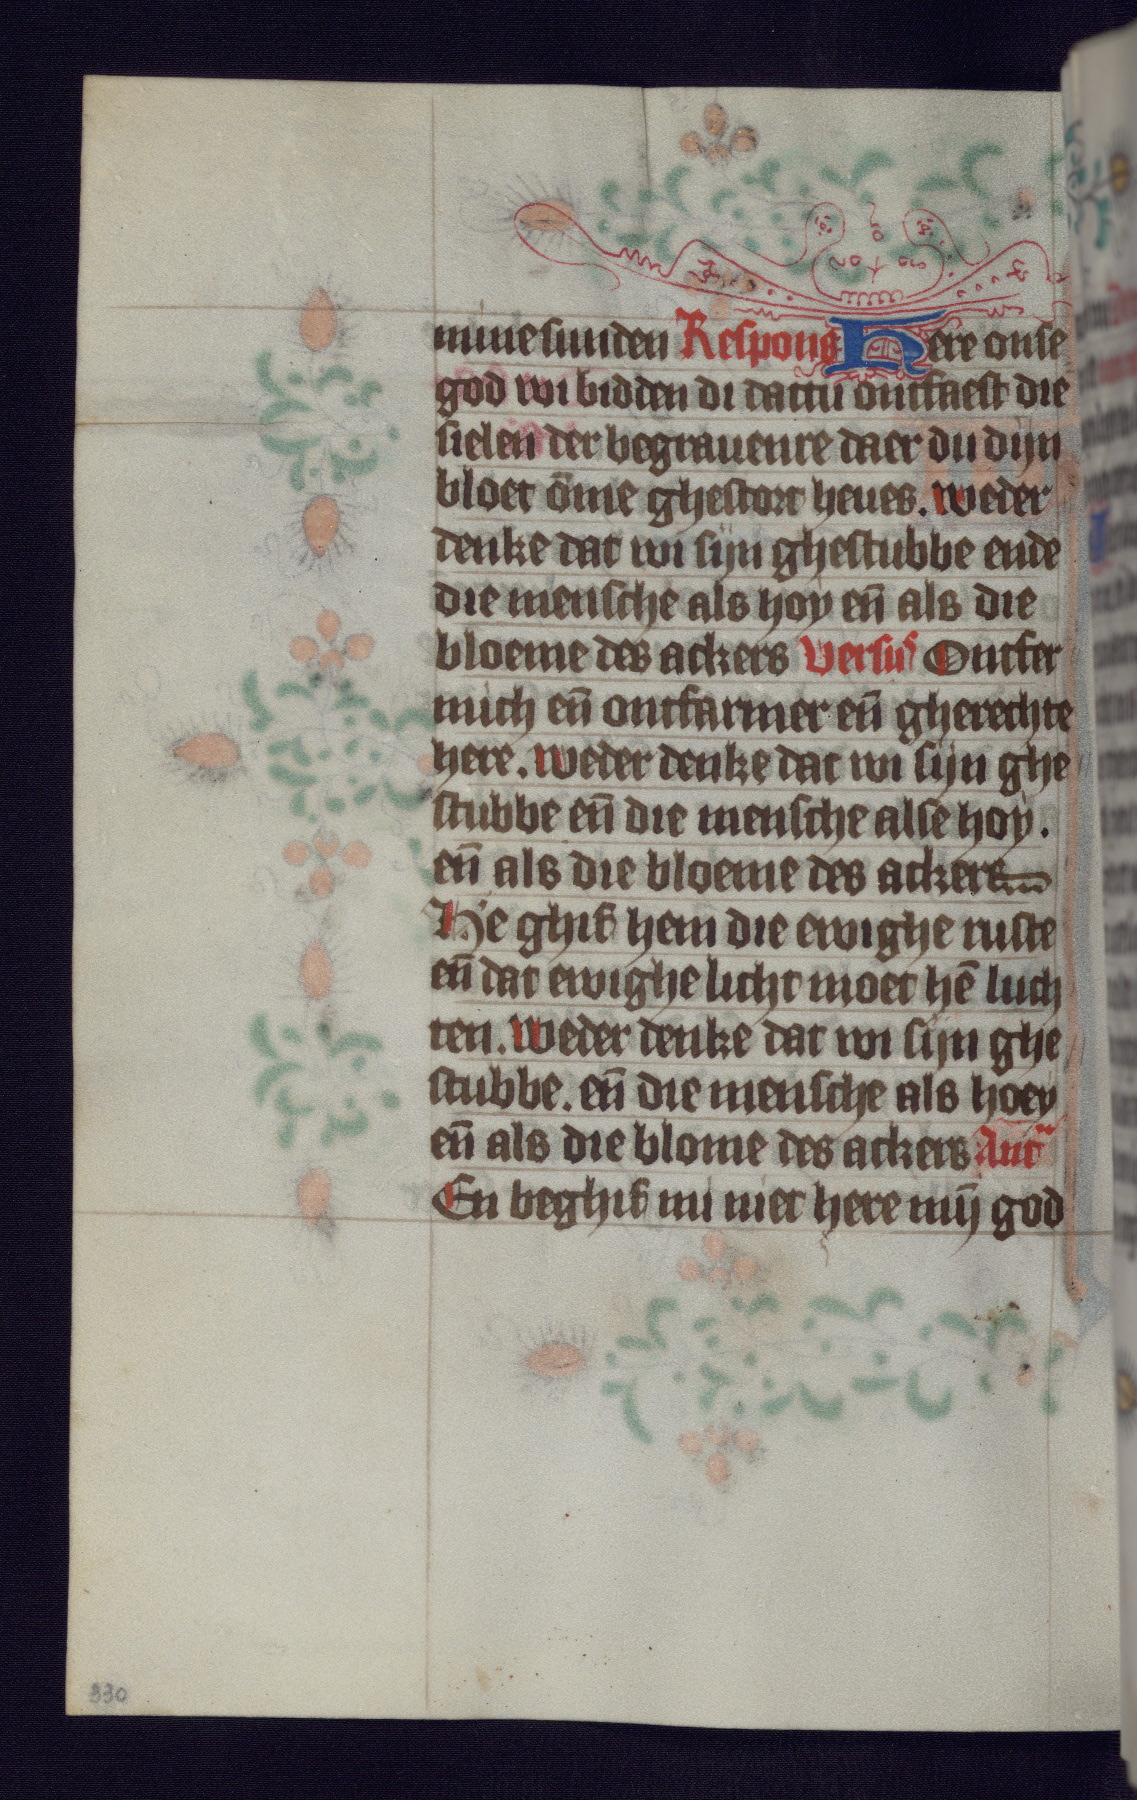 mine sunden Respons Here onse
god wi bidden di dattu ontfaest die
sielen der begrauenre daer du dijn
bloet õme ghestort heues. Weder
denke dat wi sijn ghestubbe ende
die mensche als hoy en̄ als die
bloeme des ackers Versus Ontfer
mich en̄ ontfarmer en̄ gherechte
here. Weder denke dat wi sijn ghe
stubbe en̄ die mensche alse hoy.
en̄ als die bloeme des ackers
He ghif hem die ewighe ruste
en̄ dat ewighe licht moet hē luch
ten. Weder denke dat wi sijn ghe
stubbe. en̄ die mensche als hoey
en̄ als die blome des ackers Ant̄
En beghif mi niet here mij̄ god
330